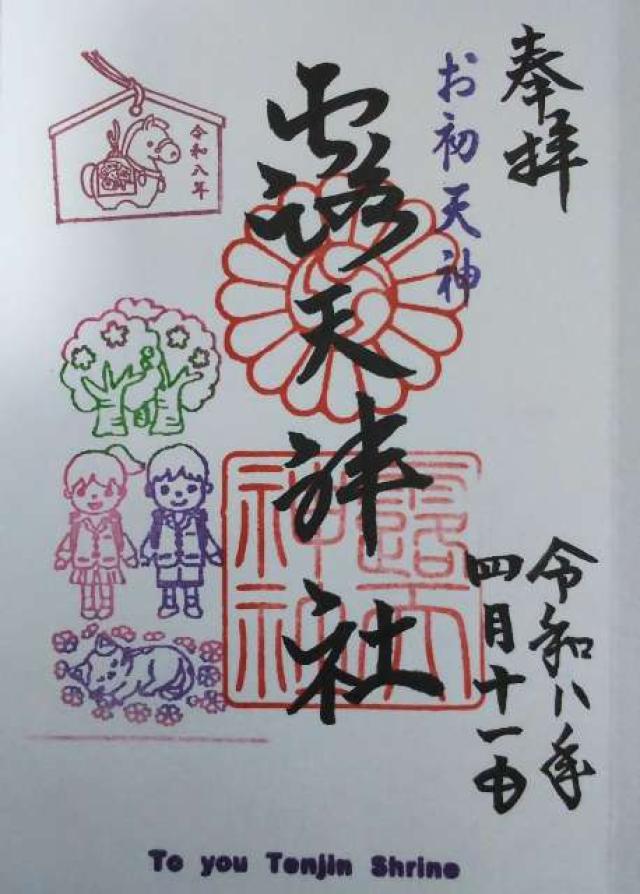 奉拝
お初天神
露天神社
令和八年
四月十一日
令和八年
露天
神社
To you Tenjin Shrine